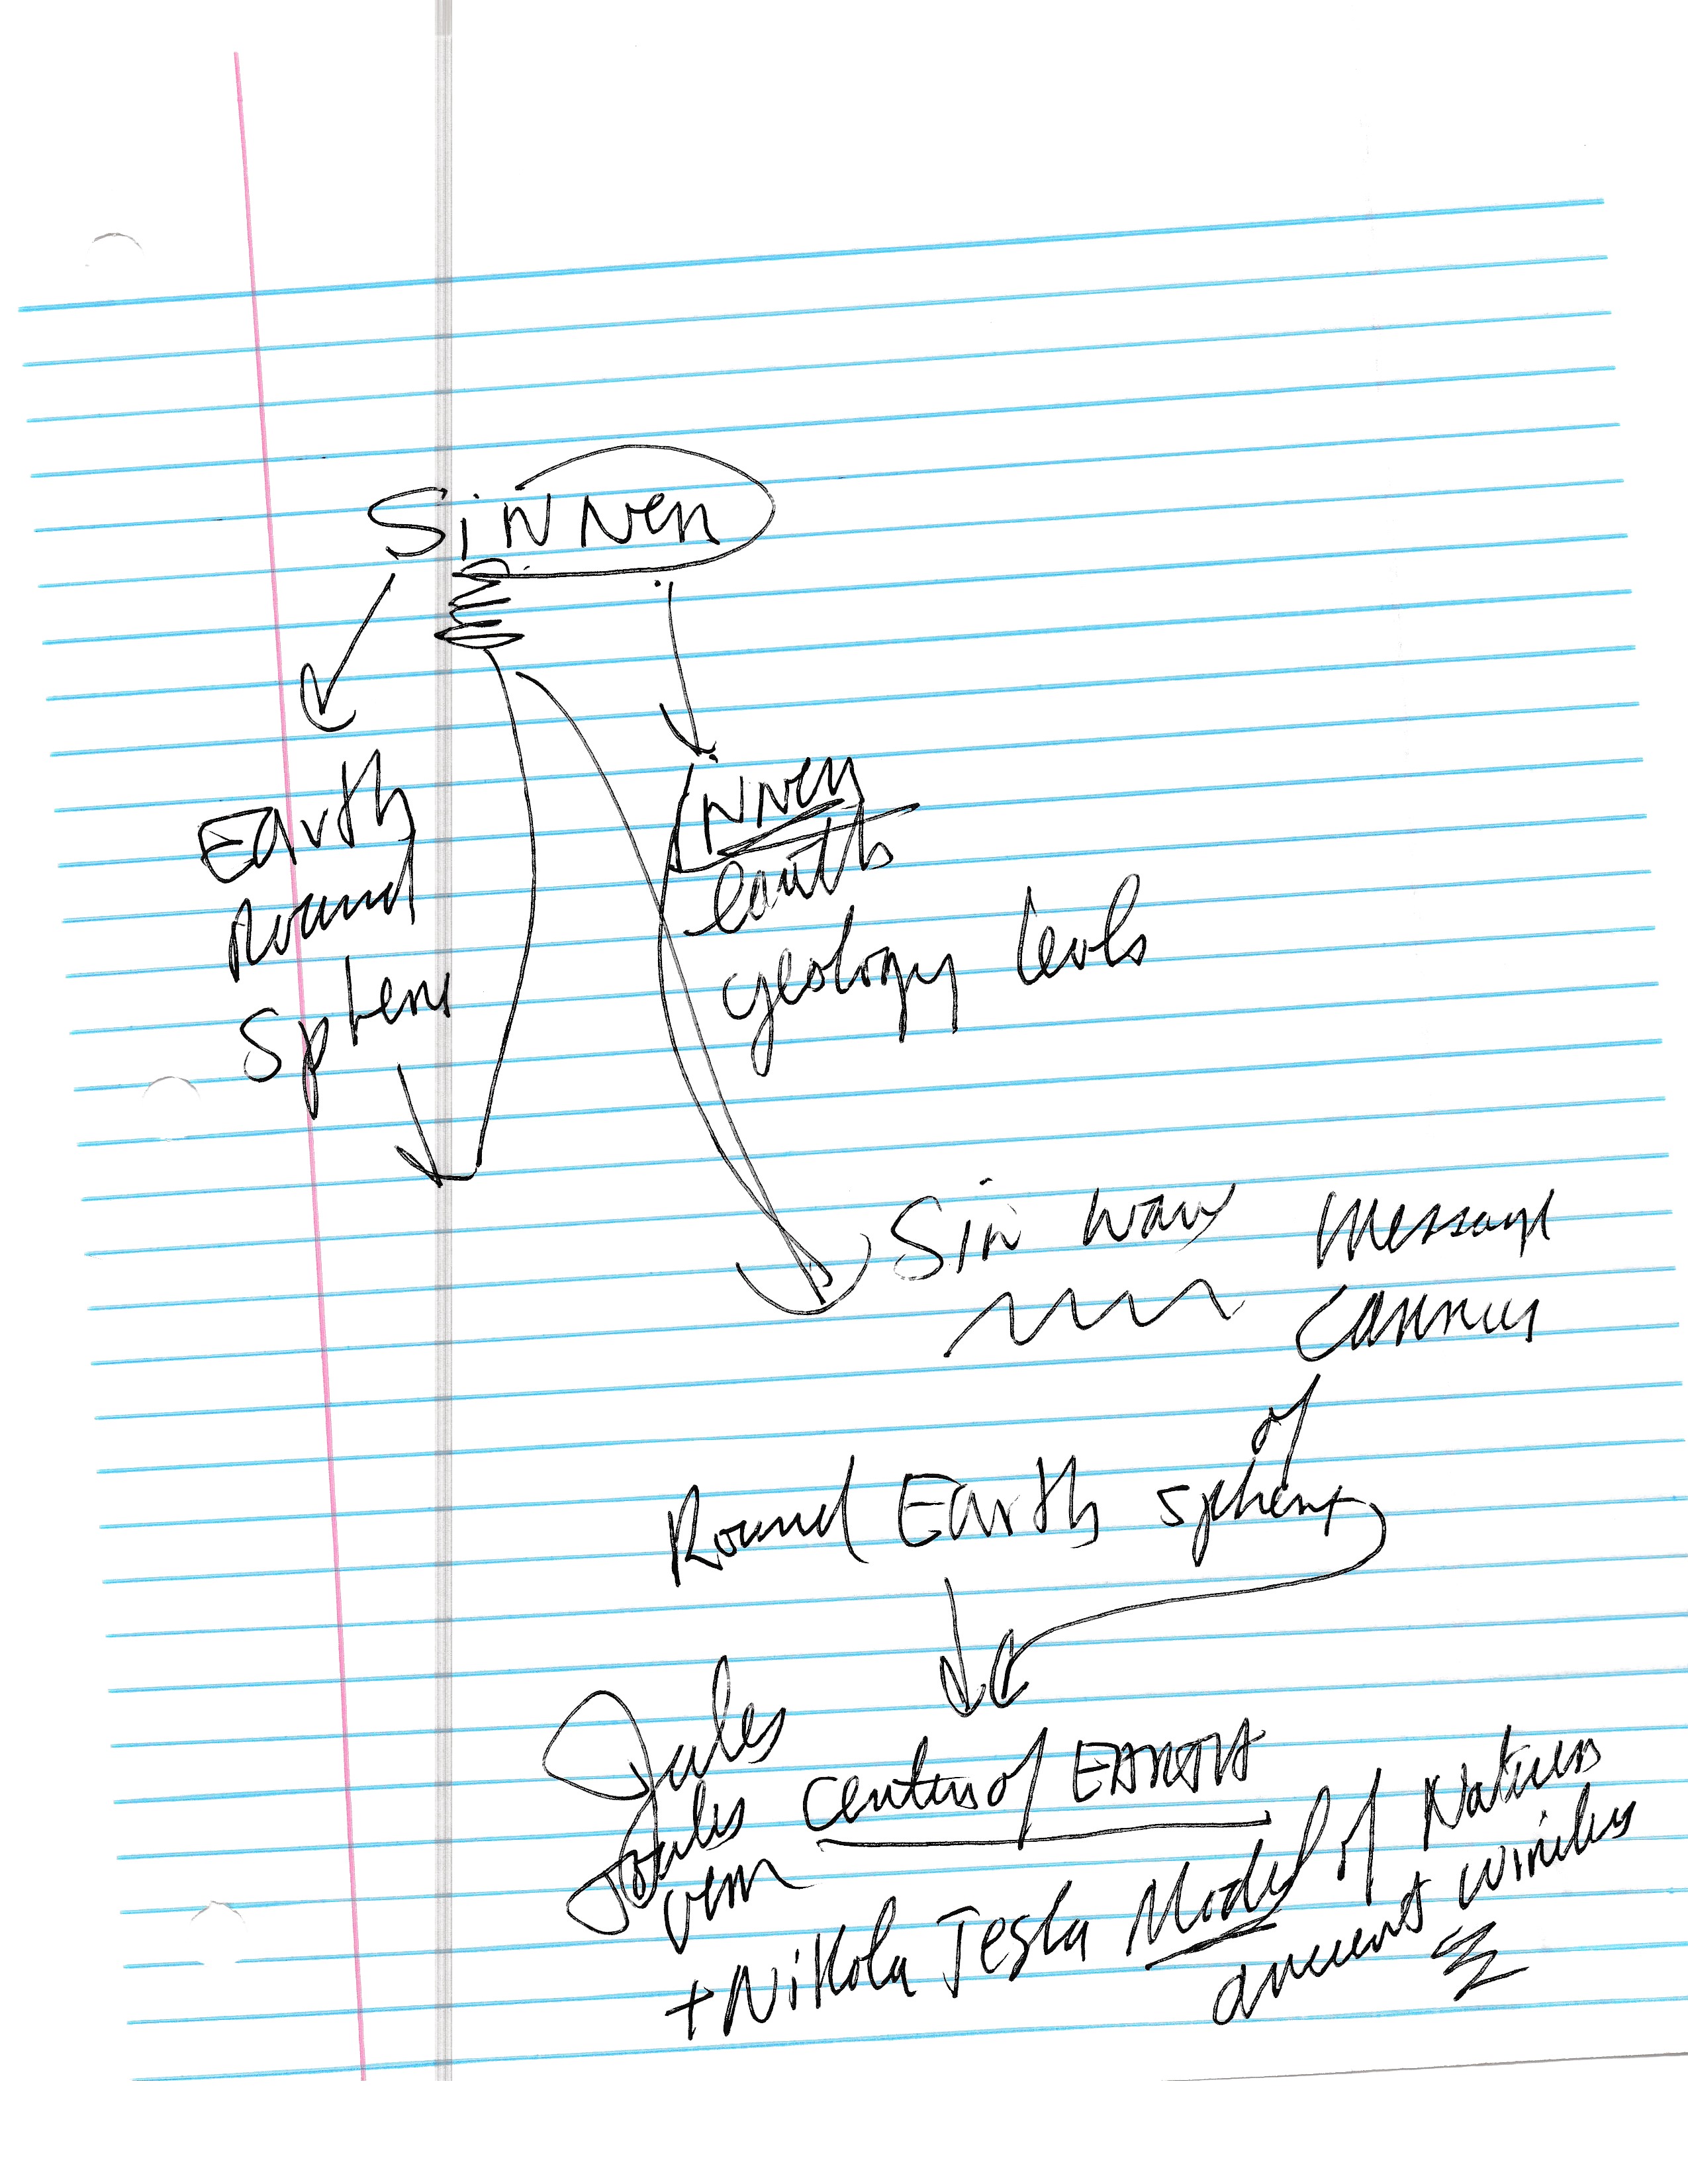 SiNNer
Earth
Round
Sphere
iNNer
earth
geology levls
Sin wave message
carrier
of
Round Earth sphere
Jules
Jules
vern
center of EARTH
+ Nikola Tesla Model of Natures
ancient